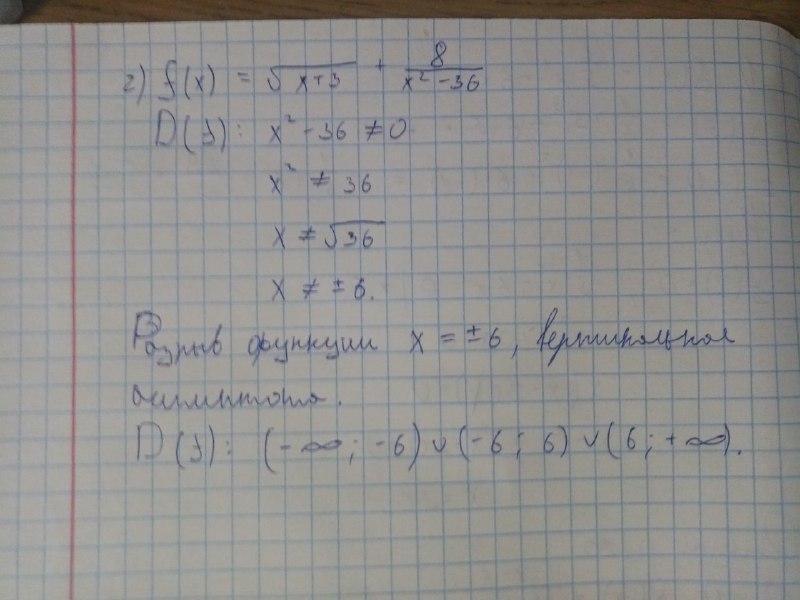 г) f(x) = √(x+3) + 8/(x² - 36)
D(f): x² - 36 ≠ 0
x² ≠ 36
x ≠ √36
x ≠ ± 6.
Разрыв функции x = ± 6, вертикальная
асимптота.
D(f): (-∞; -6) ∪ (-6; 6) ∪ (6; +∞).